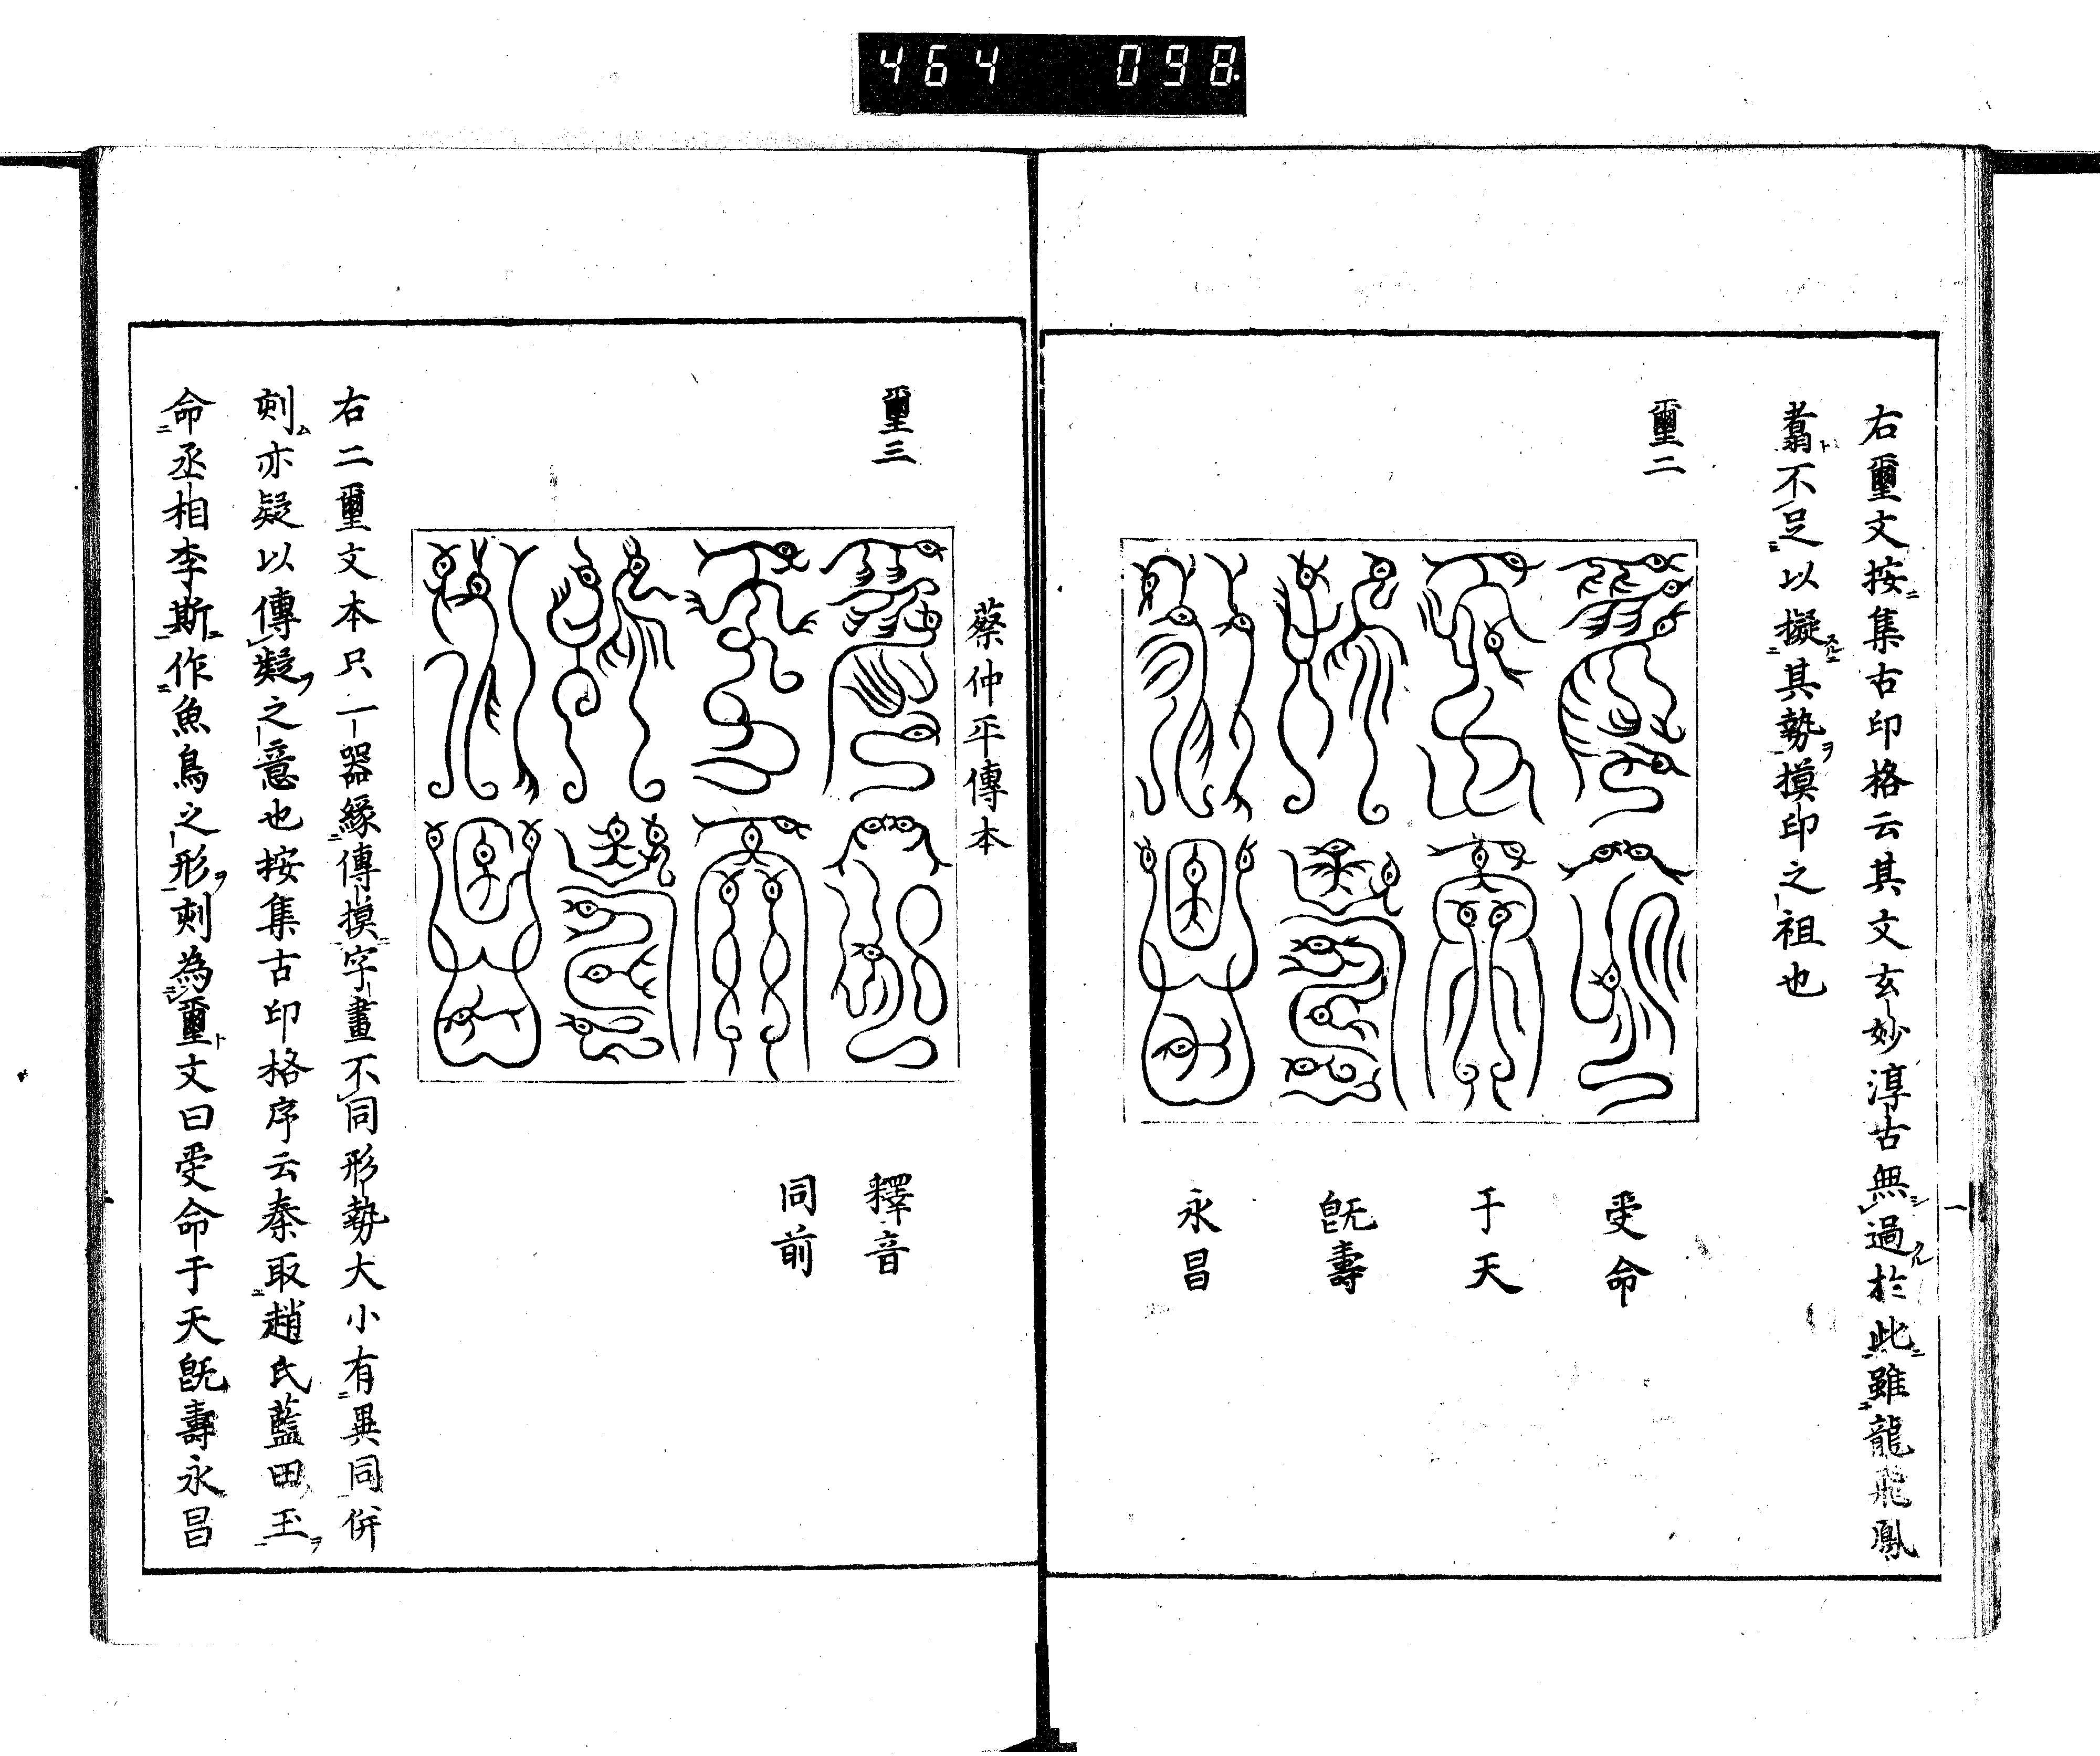 464 098
右璽文按集古印格云其文玄妙淳古無過於此雖龍飛鳳
翥不足以擬其勢摸印之祖也
璽二
受命
于天
既壽
永昌
蔡仲平傳本
璽三
釋音
同前
右二璽文本只一器緣傳摸字畫不同形勢大小有異同併
刻亦疑以傳疑之意也按集古印格序云秦取趙氏藍田玉
命丞相李斯作魚鳥之形刻為璽文曰受命于天既壽永昌